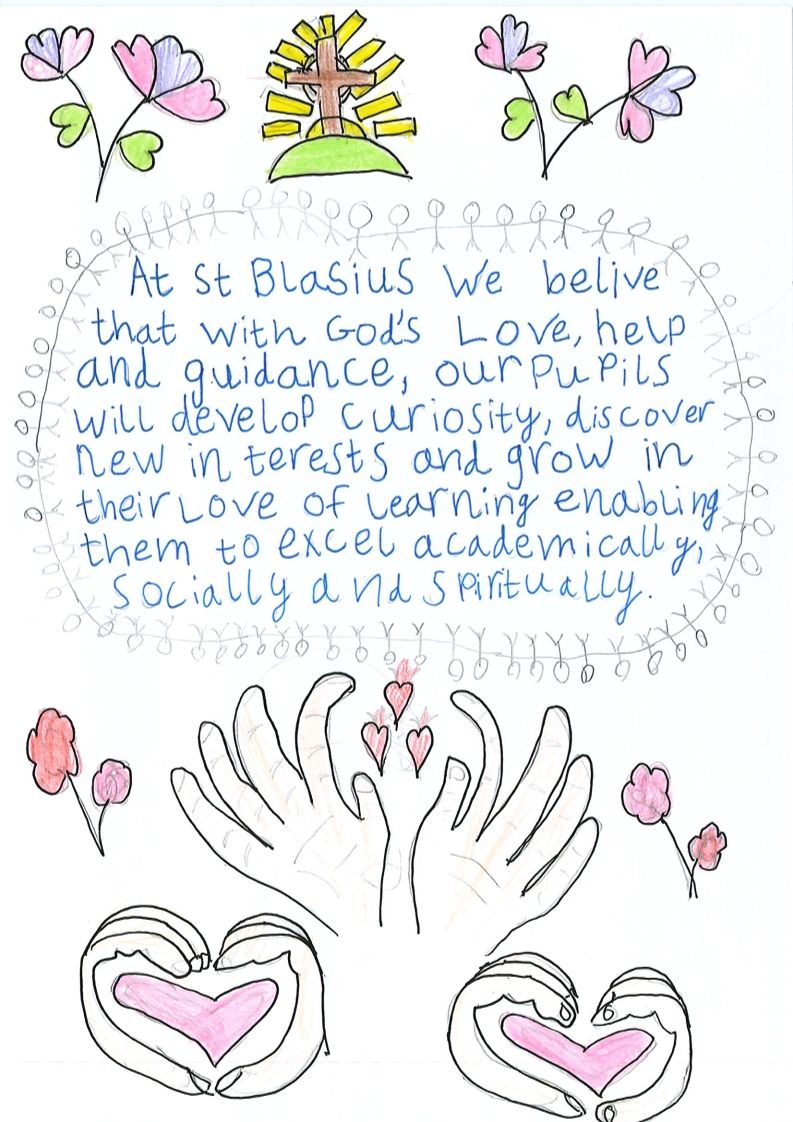 At st Blasius we belive
that with God's Love, help
and guidance, our pupils
will develop curiosity, discover
new in terests and grow in
their Love of learning enabling
them to excel academically,
socially and spiritually.